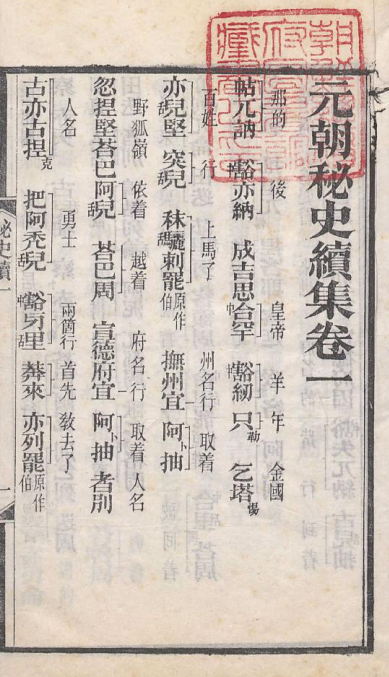 元朝秘史續集卷一
那的 後 皇帝 羊 年 金國
帖兀訥 豁亦納 成吉思合罕 豁紉 只勒 乞塔惕
百姓 行 上馬了 州名行 取着
亦兒堅 突兒 秣驪剌罷原作伯 撫州宜 阿卜抽
野狐嶺 依着 越着 府名行 取着 人名
忽捏堅荅巴阿兒 荅巴周 宣德府宜 阿卜抽 者別
人名 勇士 兩箇行 首先 敎去了
古亦古捏克 把阿禿兒 豁牙里 莽來 亦列罷原作伯
秘史續一